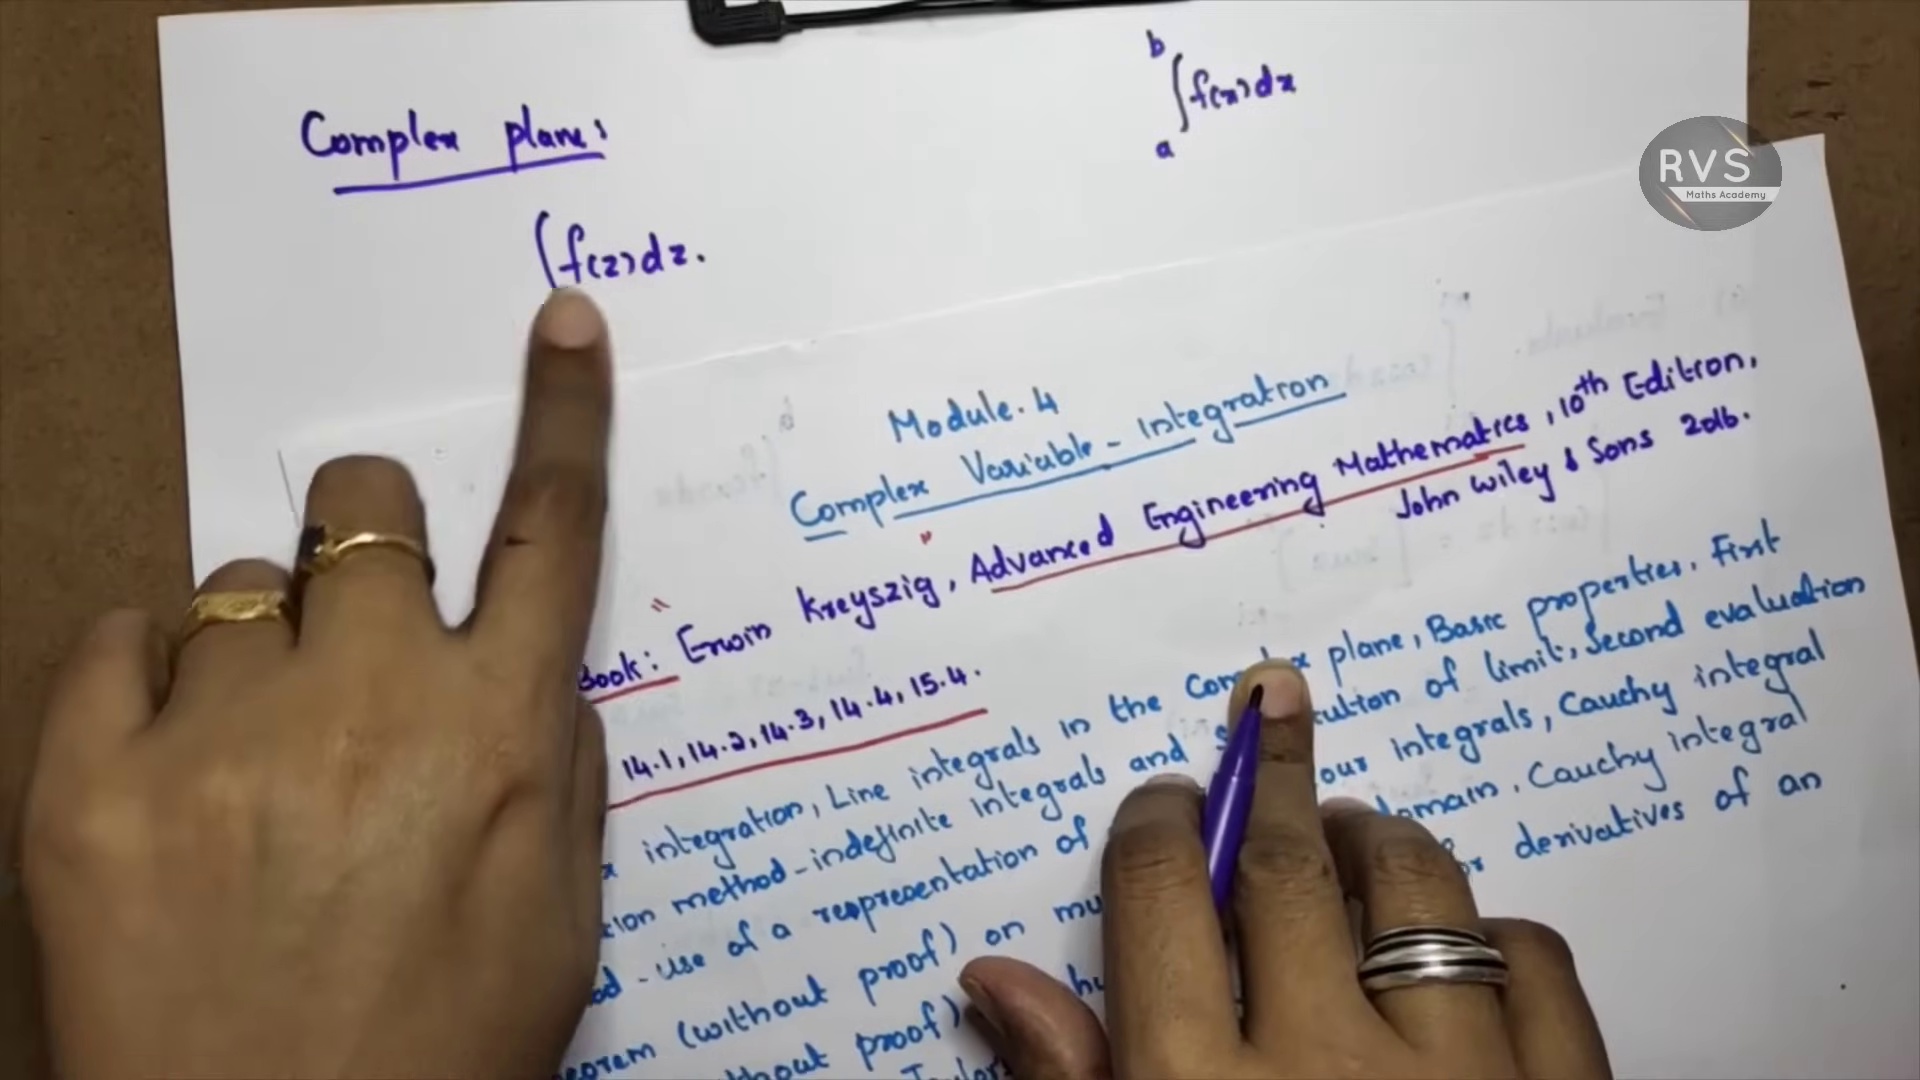 b
∫f(x)dx
a
Complex plane:
∫f(z)dz.
RVS
Maths Academy
Module. 4
Complex Variable - Integration
Book: Erwin Kreyszig, Advanced Engineering Mathematics, 10th Edition,
John Wiley & Sons 2016.
14.1, 14.2, 14.3, 14.4, 15.4.
integration, Line integrals in the Complex plane, Basic properties. First
method - indefinite integrals and of limit, Second evaluation
- use of a representation of integrals, Cauchy integral
(without proof) on domain. Cauchy integral
proof) derivatives of an